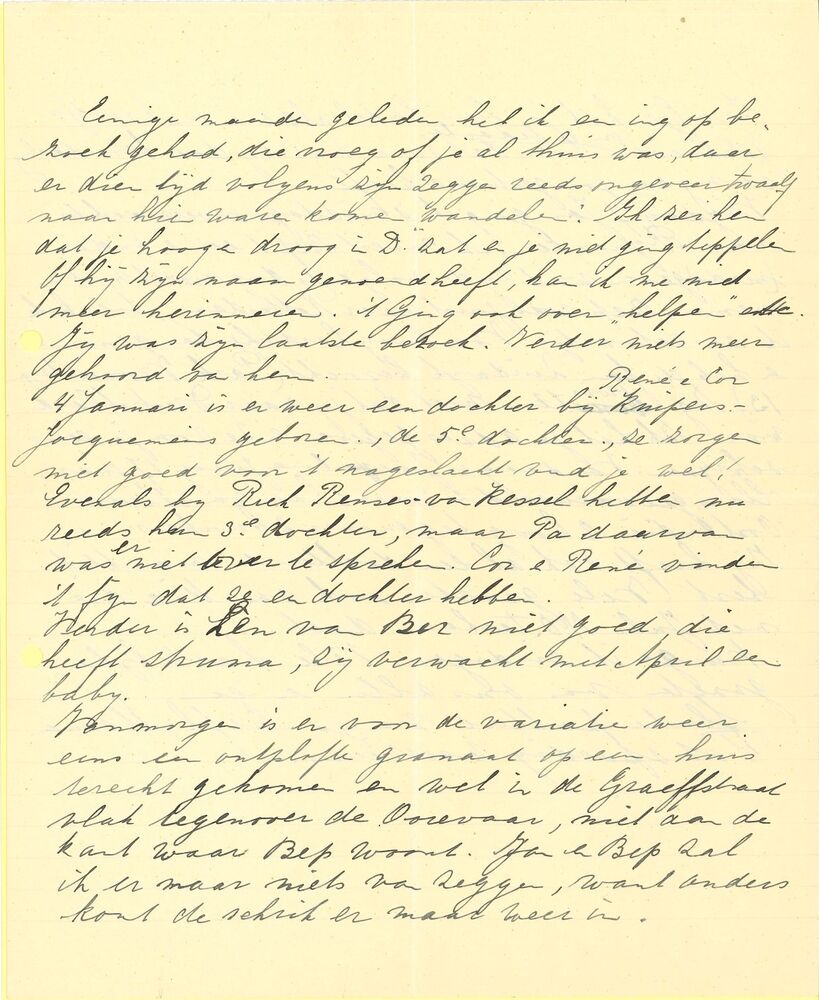 Eenige maanden geleden heb ik een ing op be-
zoek gehad, die vroeg of je al thuis was, daar
er dien tijd volgens zijn zeggen reeds ongeveer twaalf
naar hier waren komen wandelen. Ik zei hem
dat je hoog en droog in D. zat en je niet ging tippelen
Of hij zijn naam genoemd heeft, kan ik me niet
meer herinneren. 't Ging ook over "helpen" etc.
Jij was zijn laatste bezoek. Verder niets meer
gehoord van hem
René en Cor
4 Januari is er weer een dochter bij Kuipers-
Jacquemens geboren., de 5e dochter., ze zorgen
niet goed voor 't nageslacht vind je wel!
Evenals bij Riek Renses-van Kessel hebben nu
reeds hun 3e dochter, maar Pa daarvan
was er niet over te spreken. Cor en René vinden
't fijn dat ze een dochter hebben.
Verder is Len van Ber niet goed, die
heeft struma, zij verwacht met April een
baby.
Vanmorgen is er voor de variatie weer
eens een ontplofte granaat op een huis
terecht gekomen en wel in de Graeffstraat
vlak tegenover de Ooievaar, niet aan de
kant waar Bep woont. Jan en Bep zal
ik er maar niets van zeggen, want anders
komt de schrik er maar weer in.